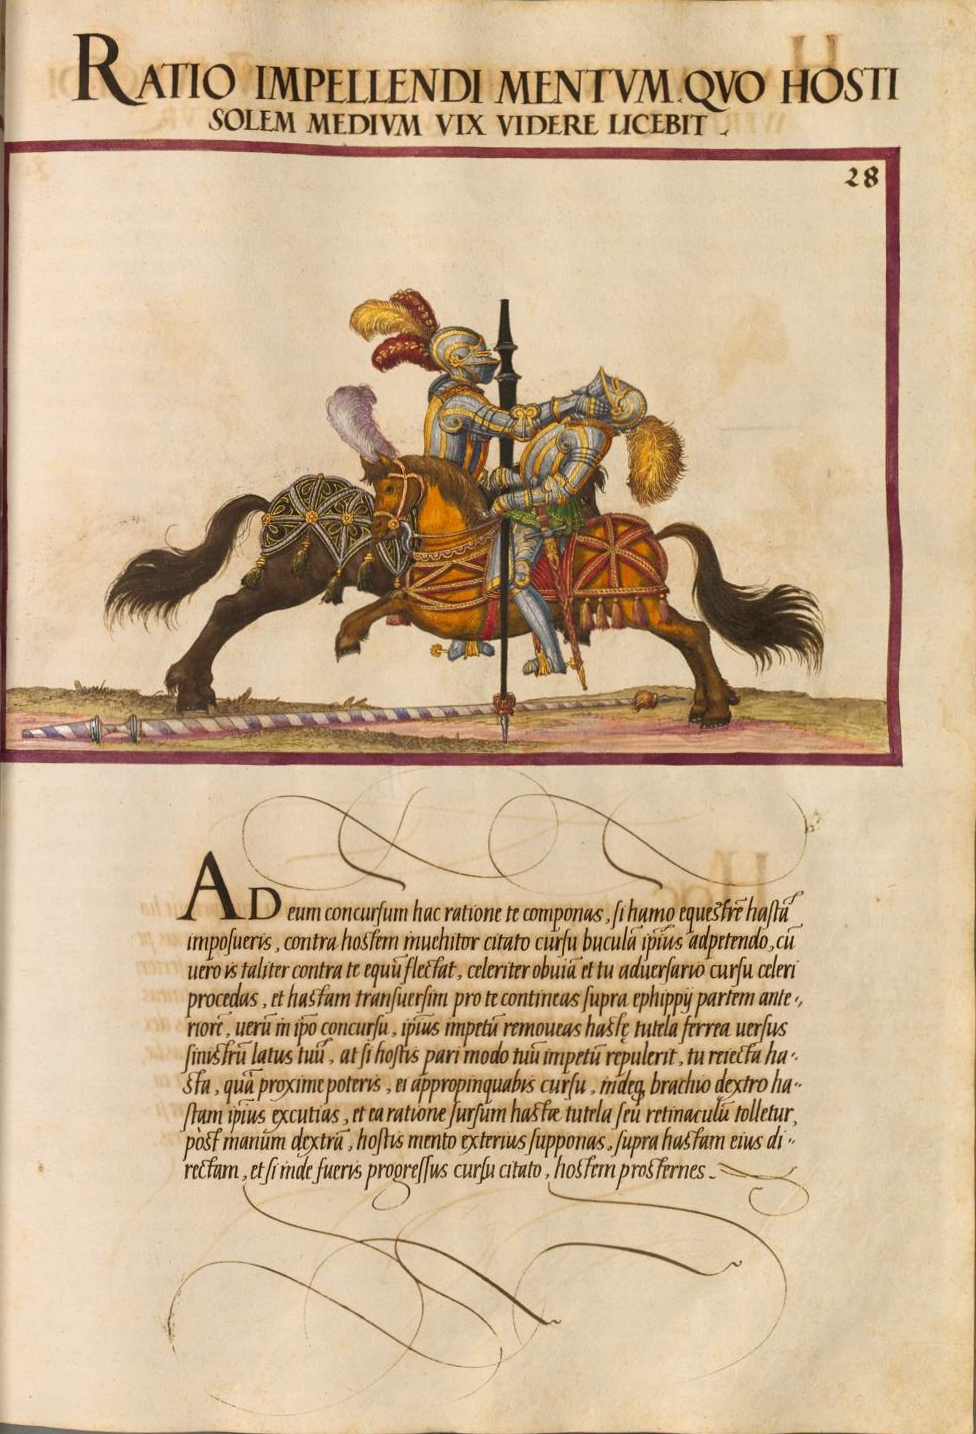 RATIO IMPELLENDI MENTVM QVO HOSTI
SOLEM MEDIVM VIX VIDERE LICEBIT
28
AD eum concursum hac ratione te componas, si hamo equestrē hastā
imposueris, contra hostem inuehitor citato cursu buculā ipsius adpetendo, cū
uero is taliter contra te equū flectat, celeriter obuiā et tu aduersario cursu celeri
procedas, et hastam transuersim pro te contineas supra ephippij partem ante-
riorē, uerū in ip̄o concursu, ipsius impetū remoueas hastę tutela ferrea uersus
sinistrū latus tuū, at si hostis pari modo tuū impetū repulerit, tu reiecta ha-
sta, quā proxime poteris, ei appropinquabis cursu, indeq brachio dextro ha-
stam ipsius excutias, et ea ratione sursum hastæ tutela seu retinaculū tolletur,
post manum dextrā, hostis mento exterius supponas, supra hastam eius di-
rectam, et si inde fueris progressus cursu citato, hostem prosternes.